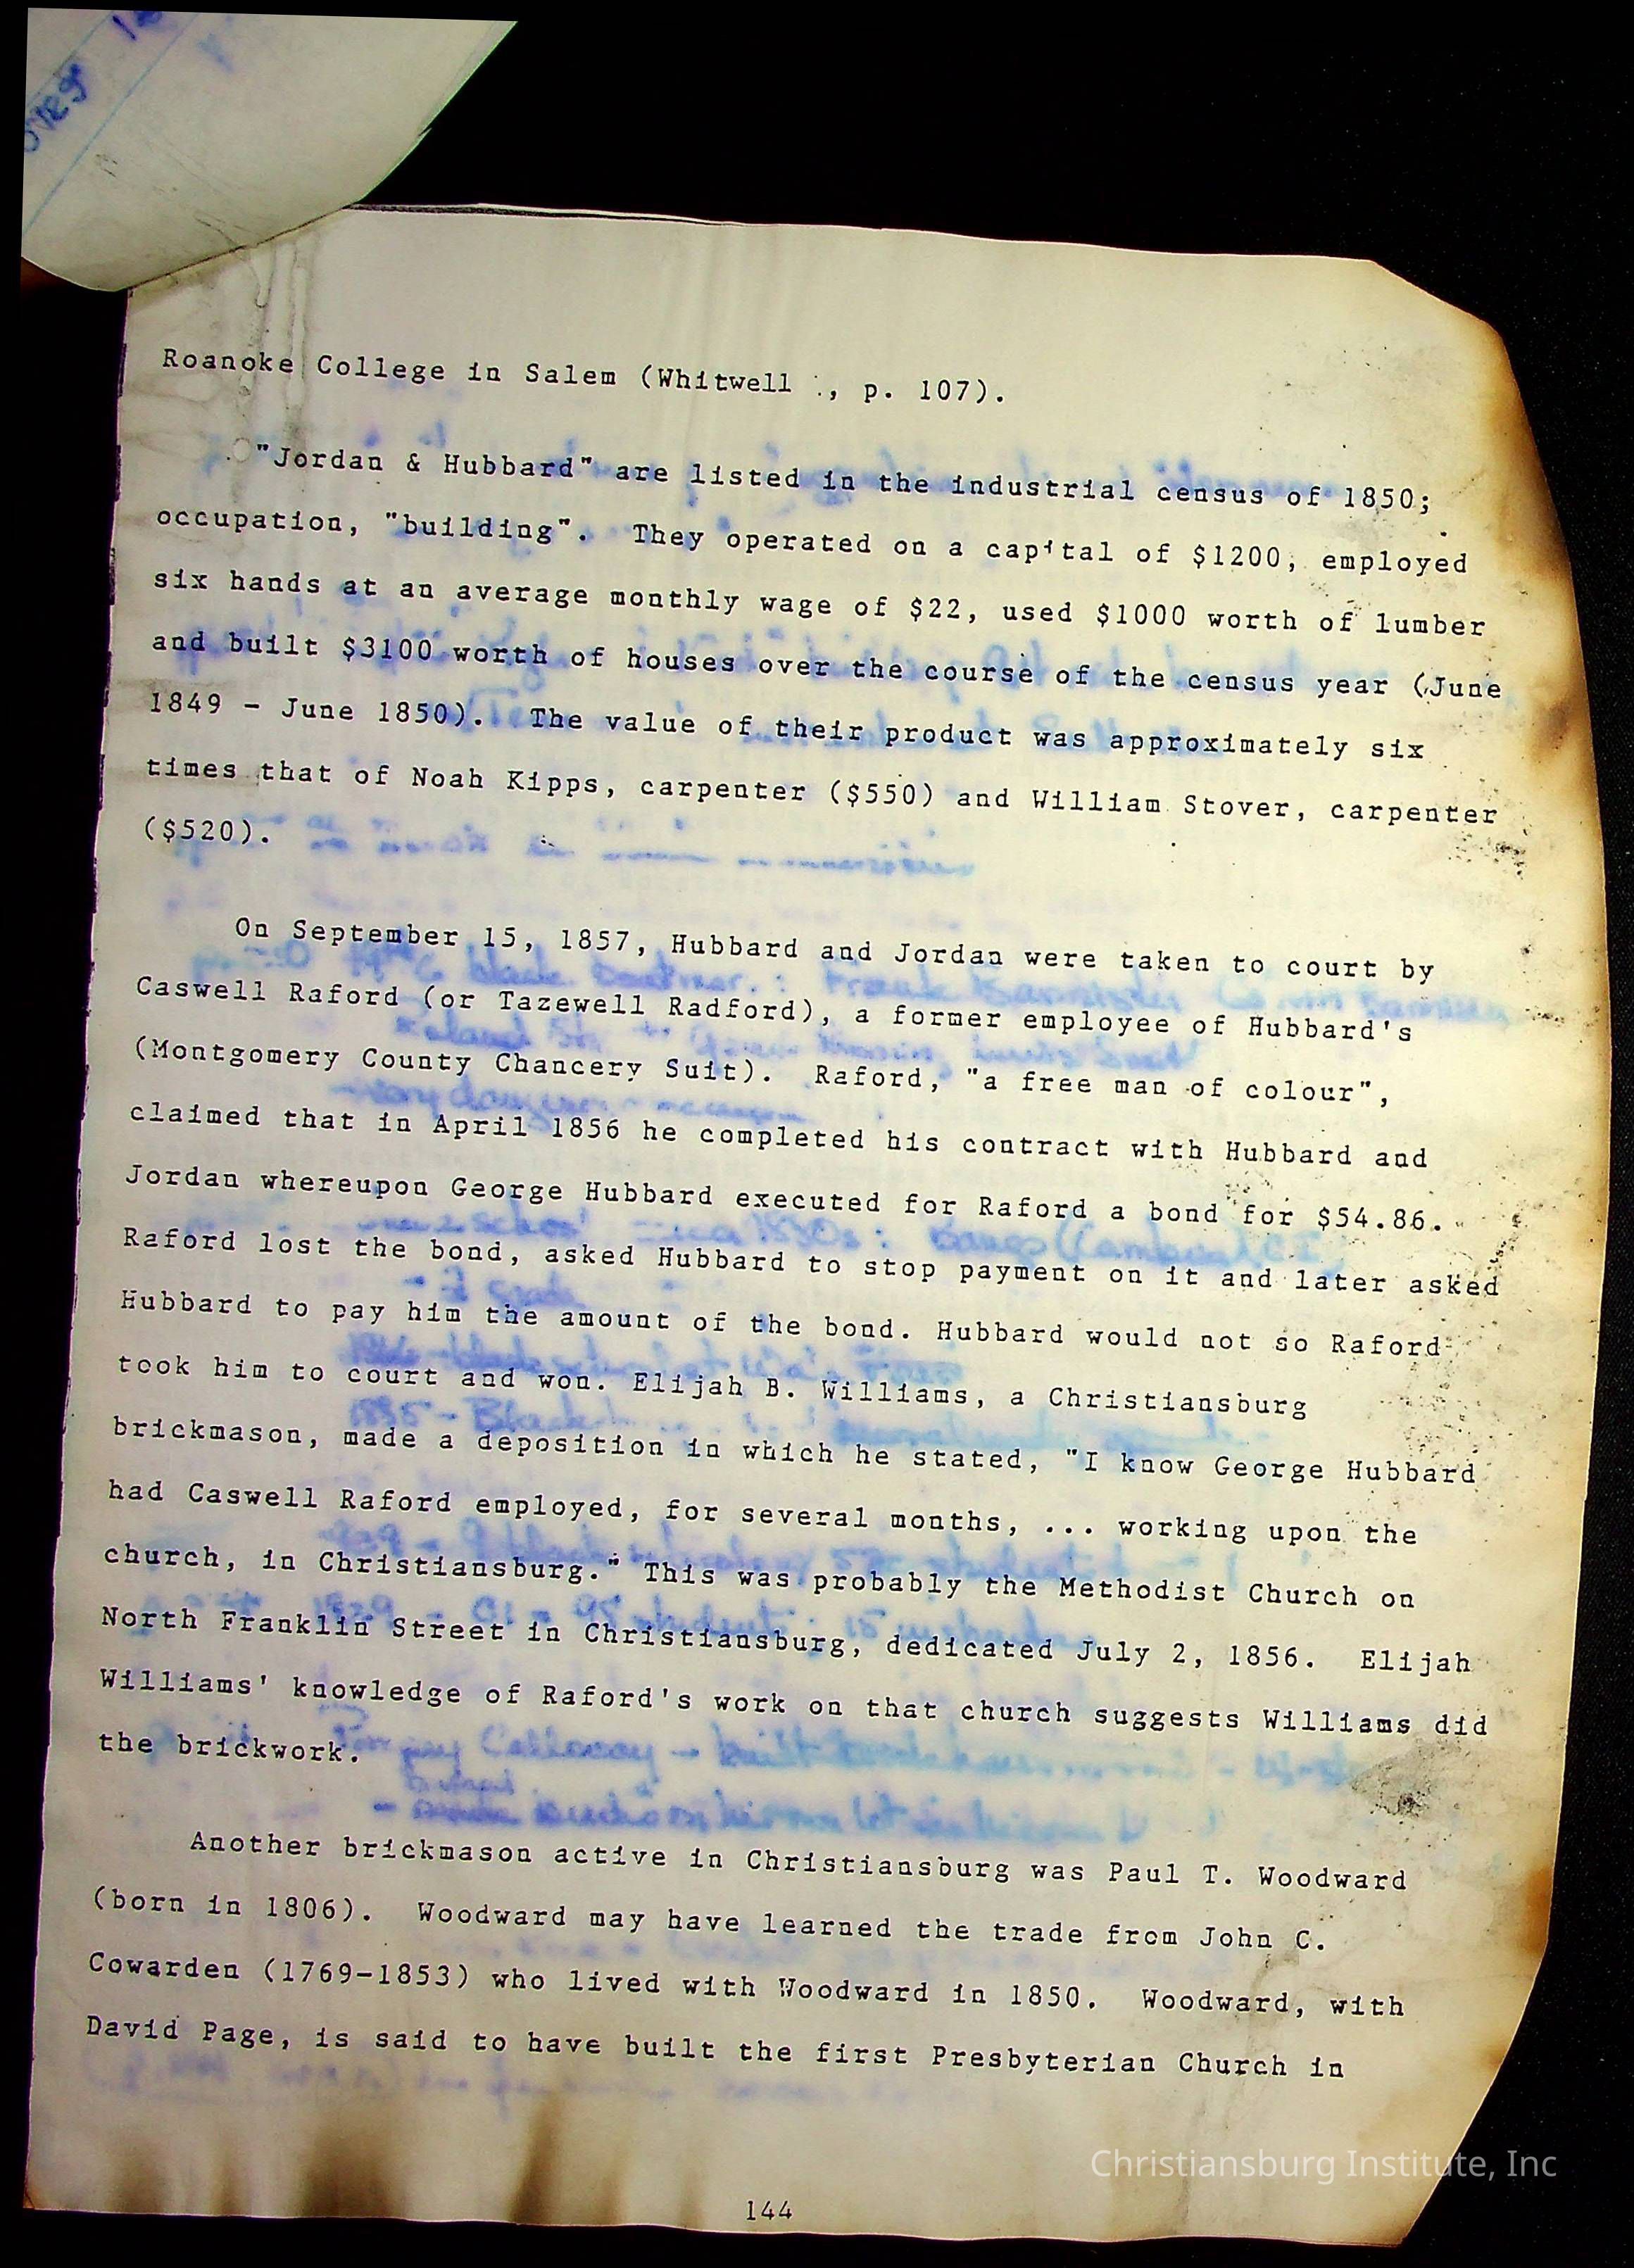 Roanoke College in Salem (Whitwell ., p. 107).
"Jordan & Hubbard" are listed in the industrial census of 1850;
occupation, "building". They operated on a capital of $1200, employed
six hands at an average monthly wage of $22, used $1000 worth of lumber
and built $3100 worth of houses over the course of the census year (June
1849 - June 1850). The value of their product was approximately six
times that of Noah Kipps, carpenter ($550) and William Stover, carpenter
($520).
On September 15, 1857, Hubbard and Jordan were taken to court by
Caswell Raford (or Tazewell Radford), a former employee of Hubbard's
(Montgomery County Chancery Suit). Raford, "a free man of colour",
claimed that in April 1856 he completed his contract with Hubbard and
Jordan whereupon George Hubbard executed for Raford a bond for $54.86.
Raford lost the bond, asked Hubbard to stop payment on it and later asked
Hubbard to pay him the amount of the bond. Hubbard would not so Raford
took him to court and won. Elijah B. Williams, a Christiansburg
brickmason, made a deposition in which he stated, "I know George Hubbard
had Caswell Raford employed, for several months, ... working upon the
church, in Christiansburg." This was probably the Methodist Church on
North Franklin Street in Christiansburg, dedicated July 2, 1856. Elijah
Williams' knowledge of Raford's work on that church suggests Williams did
the brickwork.
Another brickmason active in Christiansburg was Paul T. Woodward
(born in 1806). Woodward may have learned the trade from John C.
Cowarden (1769-1853) who lived with Woodward in 1850. Woodward, with
David Page, is said to have built the first Presbyterian Church in
Christiansburg Institute, Inc
144